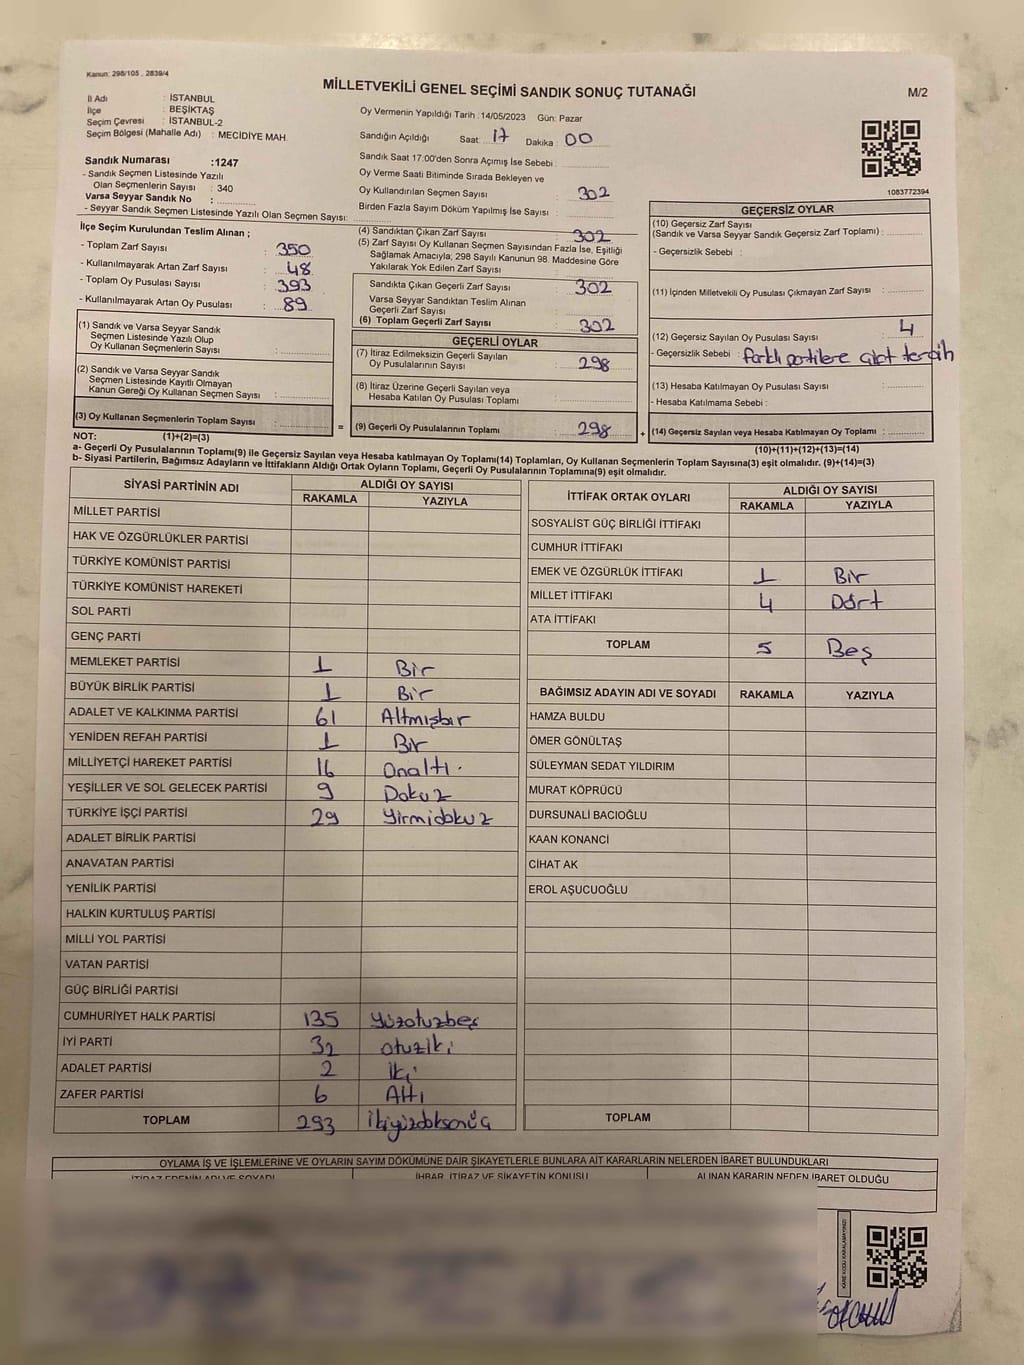 Kanun: 298/105 , 2839/4
MİLLETVEKİLİ GENEL SEÇİMİ SANDIK SONUÇ TUTANAĞI
M/2
İl Adı : İSTANBUL
İlçe : BEŞİKTAŞ
Seçim Çevresi : İSTANBUL-2
Seçim Bölgesi (Mahalle Adı) : MECİDİYE MAH.
Oy Vermenin Yapıldığı Tarih : 14/05/2023 Gün: Pazar
Sandığın Açıldığı Saat: 17 Dakika : 00
1083772394
Sandık Numarası :1247
- Sandık Seçmen Listesinde Yazılı
Olan Seçmenlerin Sayısı : 340
Varsa Seyyar Sandık No :
- Seyyar Sandık Seçmen Listesinde Yazılı Olan Seçmen Sayısı:
Sandık Saat 17:00'den Sonra Açımış İse Sebebi :
Oy Verme Saati Bitiminde Sırada Bekleyen ve
Oy Kullandırılan Seçmen Sayısı : 302
Birden Fazla Sayım Döküm Yapılmış İse Sayısı :
İlçe Seçim Kurulundan Teslim Alınan ;
- Toplam Zarf Sayısı : 350
- Kullanılmayarak Artan Zarf Sayısı : 48
- Toplam Oy Pusulası Sayısı : 393
- Kullanılmayarak Artan Oy Pusulası : 89
(1) Sandık ve Varsa Seyyar Sandık
Seçmen Listesinde Yazılı Olup
Oy Kullanan Seçmenlerin Sayısı :
(2) Sandık ve Varsa Seyyar Sandık
Seçmen Listesinde Kayıtlı Olmayan
Kanun Gereği Oy Kullanan Seçmen Sayısı :
(3) Oy Kullanan Seçmenlerin Toplam Sayısı :
=
(4) Sandıktan Çıkan Zarf Sayısı : 302
(5) Zarf Sayısı Oy Kullanan Seçmen Sayısından Fazla İse, Eşitliği
Sağlamak Amacıyla; 298 Sayılı Kanunun 98. Maddesine Göre
Yakılarak Yok Edilen Zarf Sayısı :
Sandıkta Çıkan Geçerli Zarf Sayısı : 302
Varsa Seyyar Sandıktan Teslim Alınan
Geçerli Zarf Sayısı :
(6) Toplam Geçerli Zarf Sayısı : 302
GEÇERLİ OYLAR
(7) İtiraz Edilmeksizin Geçerli Sayılan
Oy Pusulalarının Sayısı : 298
(8) İtiraz Üzerine Geçerli Sayılan veya
Hesaba Katılan Oy Pusulası Toplamı :
(9) Geçerli Oy Pusulalarının Toplamı : 298
+
GEÇERSİZ OYLAR
(10) Geçersiz Zarf Sayısı
(Sandık ve Varsa Seyyar Sandık Geçersiz Zarf Toplamı) :
- Geçersizlik Sebebi :
(11) İçinden Milletvekili Oy Pusulası Çıkmayan Zarf Sayısı :
(12) Geçersiz Sayılan Oy Pusulası Sayısı : 4
- Geçersizlik Sebebi : farklı partilere ait tercih
(13) Hesaba Katılmayan Oy Pusulası Sayısı :
- Hesaba Katılmama Sebebi :
(14) Geçersiz Sayılan veya Hesaba Katılmayan Oy Toplamı :
NOT: (1)+(2)=(3)
(10)+(11)+(12)+(13)=(14)
a- Geçerli Oy Pusulalarının Toplamı(9) ile Geçersiz Sayılan veya Hesaba katılmayan Oy Toplamı(14) Toplamları, Oy Kullanan Seçmenlerin Toplam Sayısına(3) eşit olmalıdır. (9)+(14)=(3)
b- Siyasi Partilerin, Bağımsız Adayların ve İttifakların Aldığı Ortak Oyların Toplamı, Geçerli Oy Pusulalarının Toplamına(9) eşit olmalıdır.
SİYASİ PARTİNİN ADI ALDIĞI OY SAYISI
RAKAMLA YAZIYLA
MİLLET PARTİSİ
HAK VE ÖZGÜRLÜKLER PARTİSİ
TÜRKİYE KOMÜNİST PARTİSİ
TÜRKİYE KOMÜNİST HAREKETİ
SOL PARTİ
GENÇ PARTİ
MEMLEKET PARTİSİ 1 Bir
BÜYÜK BİRLİK PARTİSİ 1 Bir
ADALET VE KALKINMA PARTİSİ 61 Altmışbir
YENİDEN REFAH PARTİSİ 1 Bir
MİLLİYETÇİ HAREKET PARTİSİ 16 Onaltı.
YEŞİLLER VE SOL GELECEK PARTİSİ 9 Dokuz
TÜRKİYE İŞÇİ PARTİSİ 29 Yirmidokuz
ADALET BİRLİK PARTİSİ
ANAVATAN PARTİSİ
YENİLİK PARTİSİ
HALKIN KURTULUŞ PARTİSİ
MİLLİ YOL PARTİSİ
VATAN PARTİSİ
GÜÇ BİRLİĞİ PARTİSİ
CUMHURİYET HALK PARTİSİ 135 Yüzotuzbeş
İYİ PARTİ 32 otuziki
ADALET PARTİSİ 2 İki
ZAFER PARTİSİ 6 Altı
TOPLAM 293 İkiyüzdoksanüç
İTTİFAK ORTAK OYLARI ALDIĞI OY SAYISI
RAKAMLA YAZIYLA
SOSYALİST GÜÇ BİRLİĞİ İTTİFAKI
CUMHUR İTTİFAKI
EMEK VE ÖZGÜRLÜK İTTİFAKI 1 Bir
MİLLET İTTİFAKI 4 Dört
ATA İTTİFAKI
TOPLAM 5 Beş
BAĞIMSIZ ADAYIN ADI VE SOYADI RAKAMLA YAZIYLA
HAMZA BULDU
ÖMER GÖNÜLTAŞ
SÜLEYMAN SEDAT YILDIRIM
MURAT KÖPRÜCÜ
DURSUNALİ BACIOĞLU
KAAN KONANCİ
CİHAT AK
EROL AŞUCUOĞLU
TOPLAM
OYLAMA İŞ VE İŞLEMLERİNE VE OYLARIN SAYIM DÖKÜMÜNE DAİR ŞİKAYETLERLE BUNLARA AİT KARARLARIN NELERDEN İBARET BULUNDUKLARI
İTİRAZ EDENİN ADI VE SOYADI İHBAR, İTİRAZ VE ŞİKAYETİN KONUSU ALINAN KARARIN NEDEN İBARET OLDUĞU